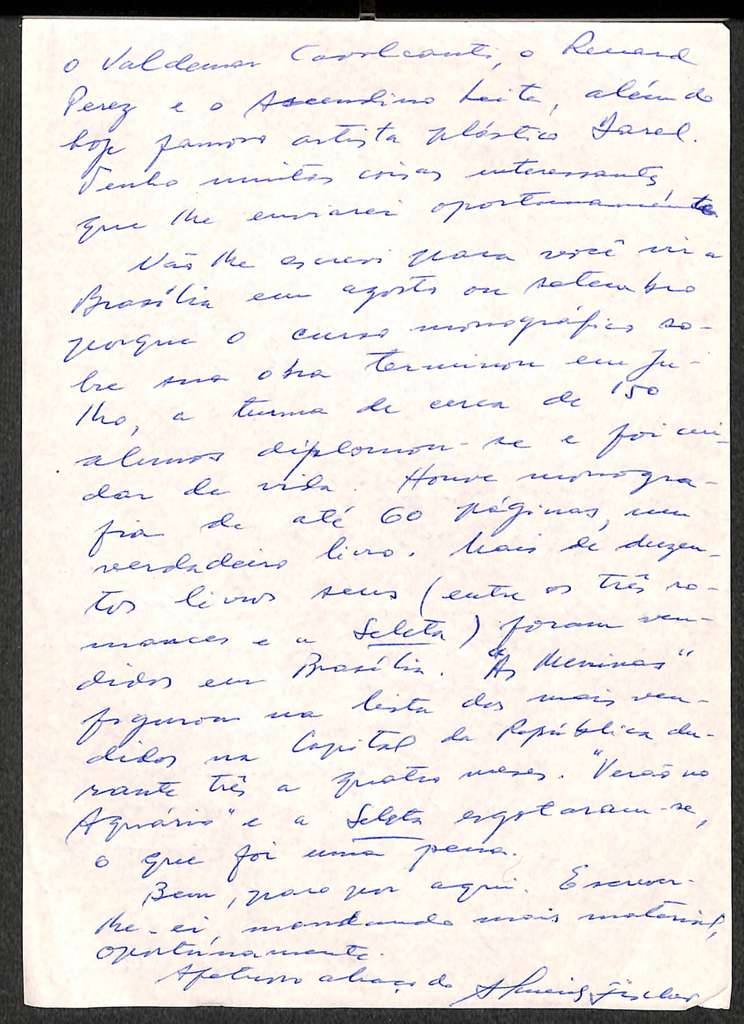 o Valdemar Cavalcanti, o Renard
Perez e o Ascendino Leite, além do
hoje famoso artista plástico Darel.
Tenho muitas coisas interessantes,
que lhe enviarei oportunamente
Não lhe escrevi para você vir a
Brasília em agosto ou setembro
porque o curso monográfico so-
bre sua obra terminou em ju-
lho, a turma de cerca de 150
alunos diplomou-se e foi cui-
dar da vida. Houve monogra-
fia de até 60 páginas, um
verdadeiro livro. Mais de duzen-
tos livros seus (entre os três ro-
mances e a Seleta) foram ven-
didos em Brasília. "As Meninas"
figurou na lista dos mais ven-
didos na Capital da República du-
rante três a quatro meses. "Verão no
Aquário" e a Seleta esgotaram-se,
o que foi uma pena.
Bem, paro por aqui. Escrever-
lhe-ei, mandando mais material,
oportunamente.
Afetuoso abraço do Almeida Fischer